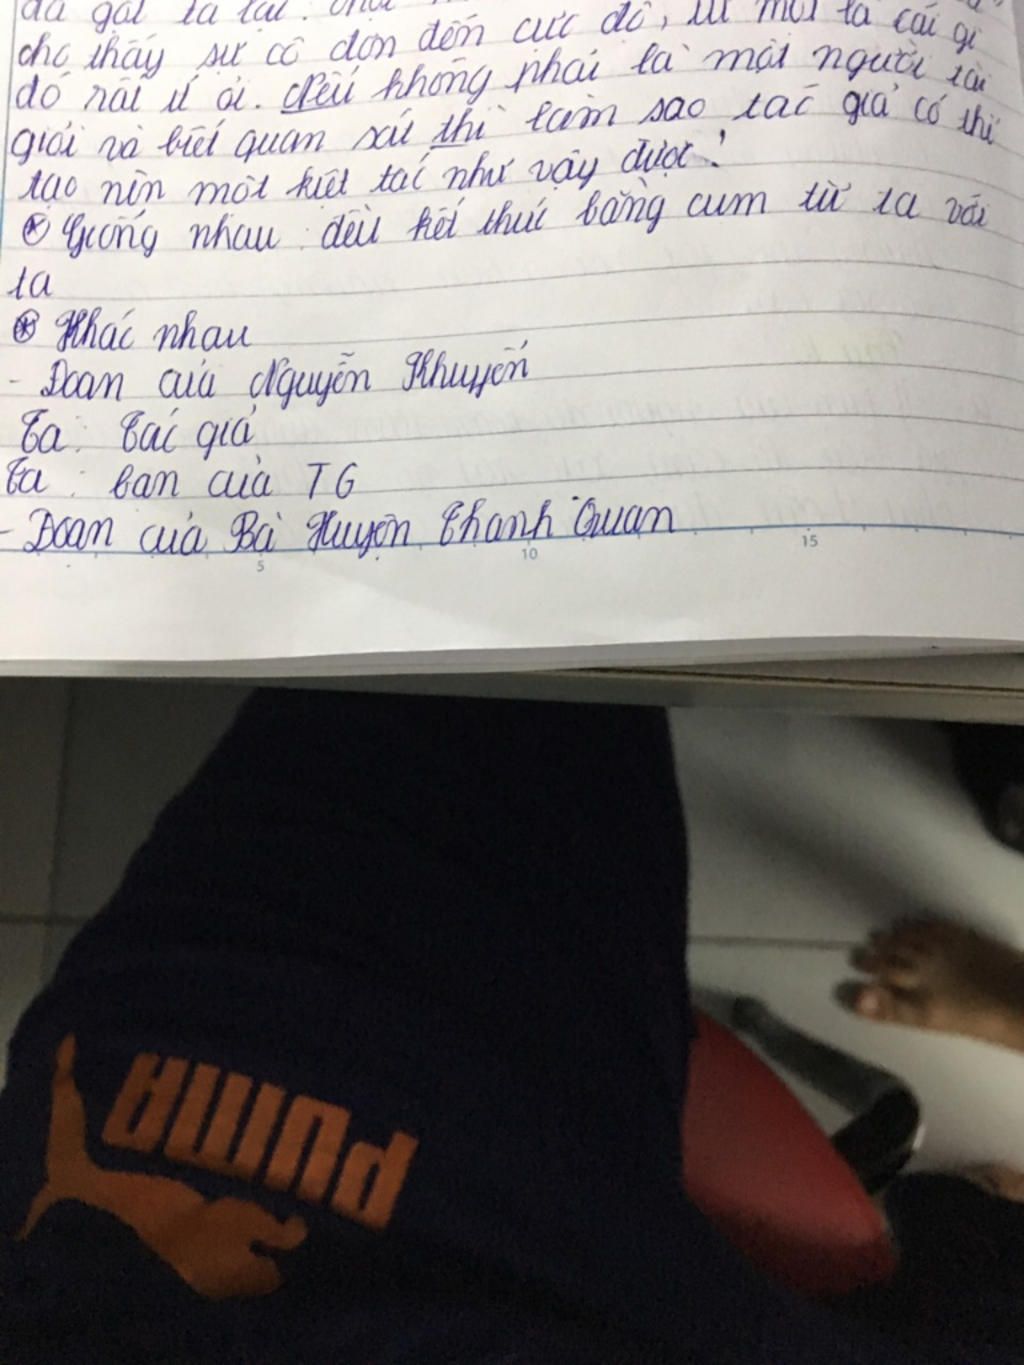 cho thấy sự cô đơn đến cực độ, từ mới là cái gì
đó rất ủ ôi. Nếu không phải là một người tài
giỏi và biết quan sát thì làm sao tác giả có thể
tạo nên một kiệt tác như vậy được!
* Giống nhau: đều kết thúc bằng cụm từ ta với
ta
* Khác nhau
- Đoạn của Nguyễn Khuyến
Ta: Tác giả
Ta: bạn của TG
- Đoạn của Bà Huyện Thanh Quan
5 10 15
PUMA